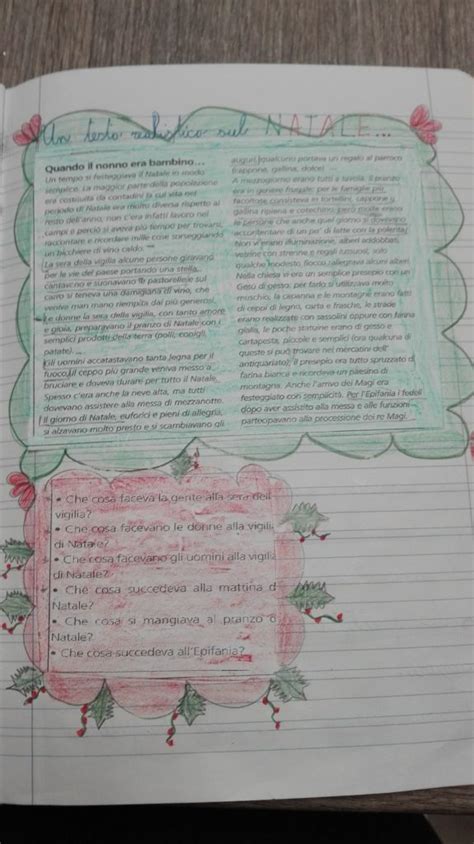 Un testo realistico sul NATALE...
Quando il nonno era bambino...
Un tempo si festeggiava il Natale in modo
semplice. La maggior parte della popolazione
era costituita da contadini la cui vita nel
periodo di Natale era molto diversa rispetto al
resto dell'anno; non c'era infatti lavoro nei
campi e perciò si aveva più tempo per trovarsi,
raccontare e ricordare mille cose sorseggiando
un bicchiere di vino caldo.
La sera della vigilia alcune persone giravano
per le vie del paese portando una stella,
cantavano e suonavano le pastorelle sul
carro si teneva una damigiana di vino, che
veniva man mano riempita dai più generosi.
Le donne la sera della vigilia, con tanto amore
e gioia, preparavano il pranzo di Natale con i
semplici prodotti della terra (polli, conigli,
patate).
Gli uomini accatastavano tanta legna per il
fuoco, il ceppo più grande veniva messo a
bruciare e doveva durare per tutto il Natale.
Spesso c'era anche la neve alta, ma tutti
dovevano assistere alla messa di mezzanotte.
Il giorno di Natale, euforici e pieni di allegria,
si alzavano molto presto e si scambiavano gli
auguri, qualcuno portava un regalo al parroco
(cappone, gallina, dolce).
A mezzogiorno erano tutti a tavola. Il pranzo
era in genere frugale: per le famiglie più
facoltose consisteva in tortellini, cappone o
gallina ripiena e cotechino, però molte erano
le persone che anche quel giorno si dovevano
accontentare di un po' di latte con la polenta.
Non vi erano illuminazione, alberi addobbati,
vetrine con strenne e regali lussuosi, solo
qualche modesto fiocco rallegrava alcuni alberi.
Nella chiesa vi era un semplice presepio con un
Gesù di gesso: per farlo si utilizzava molto
muschio, la capanna e le montagne erano fatti
di ceppi di legno, carta e frasche, le strade
erano realizzate con sassolini oppure con farina
gialla, le poche statuine erano di gesso e
cartapesta, piccole e semplici (ora qualcuna di
queste si può trovare nel mercatini dell'
antiquariato); il presepio era tutto spruzzato di
farina bianca e ricordava un paesino di
montagna. Anche l'arrivo dei Magi era
festeggiato con semplicità. Per l'Epifania i fedeli
dopo aver assistito alla messa e alle funzioni
partecipavano alla processione dei re Magi.
• Che cosa faceva la gente alla sera dell
vigilia?
• Che cosa facevano le donne alla vigilia
di Natale?
• Che cosa facevano gli uomini alla vigilia
di Natale?
• Che cosa succedeva alla mattina d
Natale?
• Che cosa si mangiava al pranzo d
Natale?
• Che cosa succedeva all'Epifania?